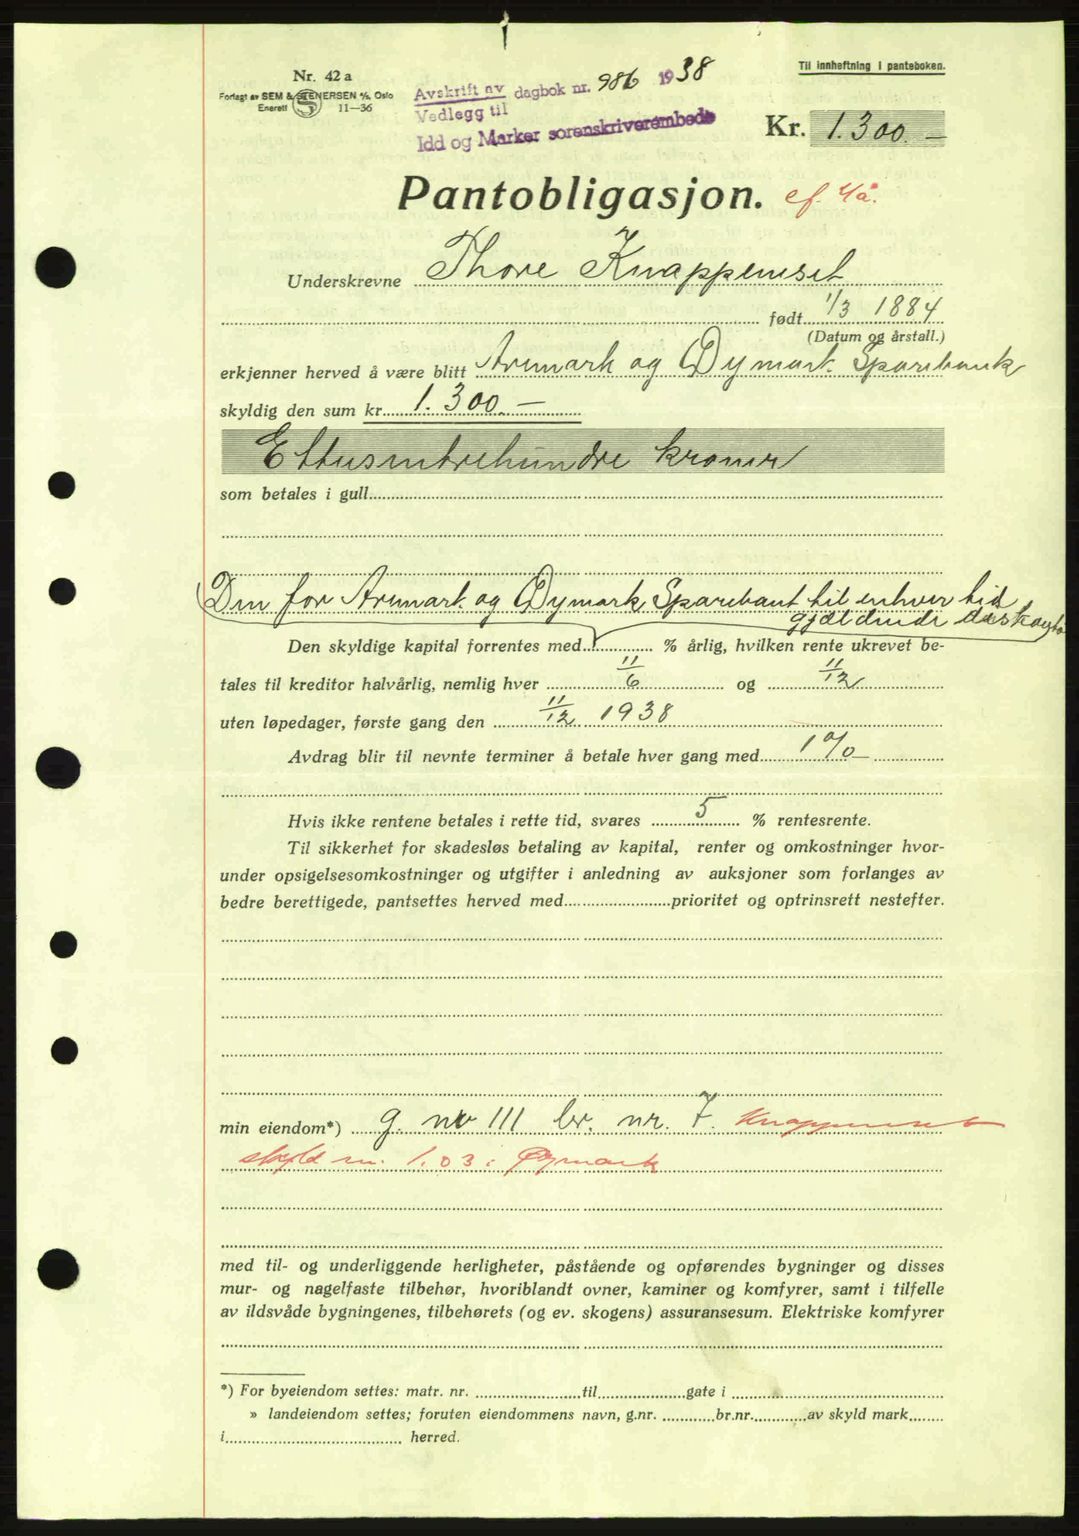 Til innheftning i panteboken.
Nr. 42 a
Forlagt av SEM & STENERSEN A/S, Oslo
Enerett 11—36
Avskrift av dagbok nr. 986 1938
Vedlegg til
Idd og Marker sorenskriverembede
Kr. 1.300.—
Pantobligasjon. ef. 4å.
Underskrevne Thore Knappemset
født 1/3 1884
(Datum og årstall.)
erkjenner herved å være blitt Aremark og Øymark Sparebank
skyldig den sum kr. 1.300.—
Ettusentrehundre kroner
som betales i gull
Den for Aremark og Øymark Sparebank til enhver tid
gjældende
Den skyldige kapital forrentes med % årlig, hvilken rente ukrevet be-
tales til kreditor halvårlig, nemlig hver 11/6 og 11/12
uten løpedager, første gang den 11/12 1938
Avdrag blir til nevnte terminer å betale hver gang med 1 % —
Hvis ikke rentene betales i rette tid, svares 5 % rentesrente.
Til sikkerhet for skadesløs betaling av kapital, renter og omkostninger hvor-
under opsigelsesomkostninger og utgifter i anledning av auksjoner som forlanges av
bedre berettigede, pantsettes herved med prioritet og optrinsrett nestefter.
min eiendom*) g. nr 111 br. nr. 7. Knappemset
skyld m. 1.03 i Øymark
med til- og underliggende herligheter, påstående og opførendes bygninger og disses
mur- og nagelfaste tilbehør, hvoriblandt ovner, kaminer og komfyrer, samt i tilfelle
av ildsvåde bygningenes, tilbehørets (og ev. skogens) assuransesum. Elektriske komfyrer
*) For byeiendom settes: matr. nr. til gate i
» landeiendom settes; foruten eiendommens navn, g.nr. br.nr. av skyld mark
i herred.